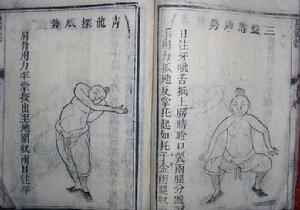 三盤落地勢
目注牙呲舌抵上腭睛瞪口裂兩腿分跪
用力抓地反掌托起如托千金兩腿收
青龍探爪勢
肩背用力平掌探出至地圍收兩目注平